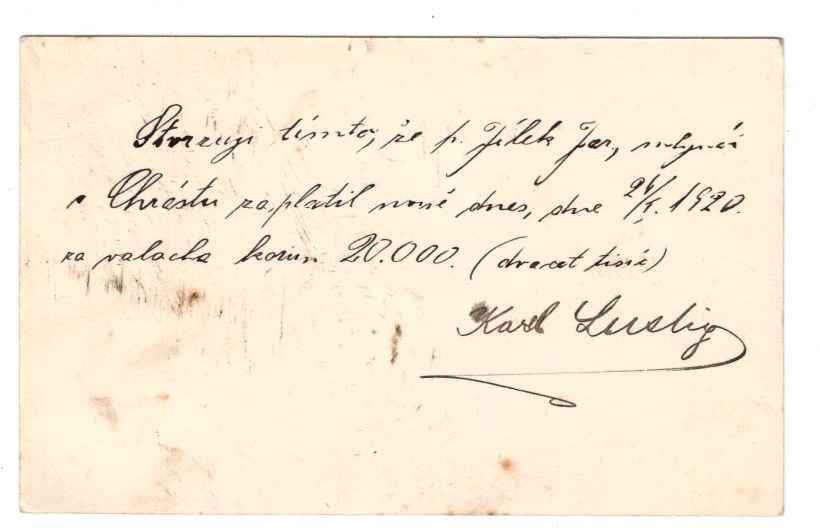 Stvrzuji tímto, že p. Jílek Jar., mlynář
v Chrástu zaplatil mně dnes, dne 26/I. 1920.
za valacha korun 20.000. (dvacet tisíc)
Karl Lustig